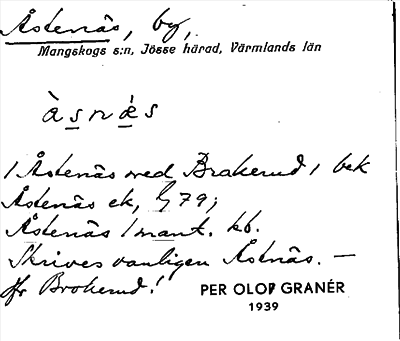 Åstenäs, by,
Mangskogs s:n, Jösse härad, Värmlands län
àsnǽs
1 Åstenäs med Brokerud, bek
Åstenäs ek, G 79;
Åstenäs 1 mant. kb.
Skrives vanligen Åstnäs. —
jfr Brokerud!
PER OLOF GRANÉR
1939